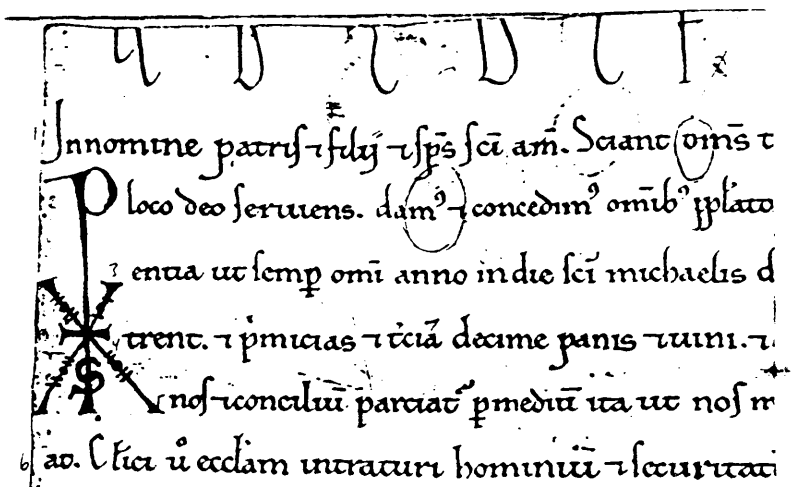 Innomine patris ⁊ filij ⁊ sp̄s sc̄i am̄. Sciant om̄s
loco deo seruiens. dam⁹ ⁊ concedim⁹ om̄ib⁹
entia ut semꝑ om̄i anno indie sc̄i michaelis d
trent. ⁊ p̄micias ⁊ t̄ciā decime panis ⁊ uini. ⁊
nos ⁊ conciliū parciat᷑ ꝑ mediū ita ut nos
ac. Cl̄ici ū eccl̄am intraturi hominiū ⁊ securitati